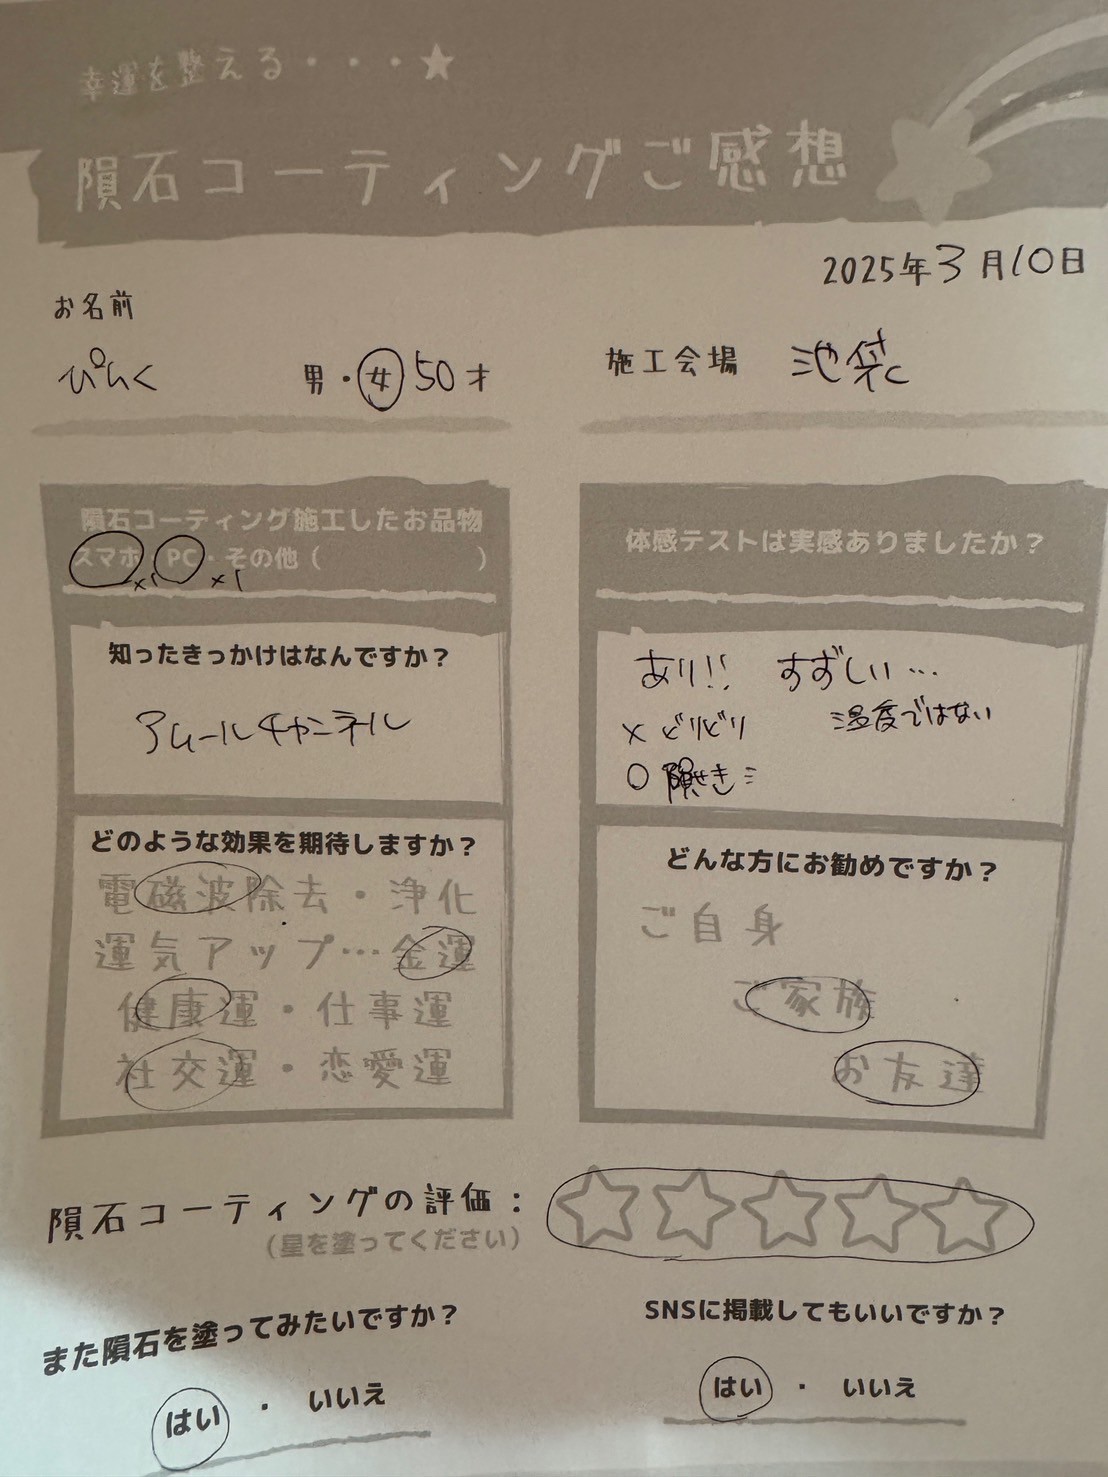 幸運を整える・・・★
隕石コーティングご感想
2025年3月10日
お名前
ぴんく
男・女 50才
施工会場 池袋
隕石コーティング施工したお品物
スマホ・PC・その他( )
x1 x1
知ったきっかけはなんですか?
アムールチャンネル
どのような効果を期待しますか?
電磁波除去・浄化
運気アップ…金運
健康運・仕事運
社交運・恋愛運
体感テストは実感ありましたか?
あり!! すずしい…
x どりどり 温度ではない
○ 隕せき
どんな方にお勧めですか?
ご自身
ご家族
お友達
隕石コーティングの評価:
(星を塗ってください)
また隕石を塗ってみたいですか?
はい ・ いいえ
SNSに掲載してもいいですか?
はい ・ いいえ